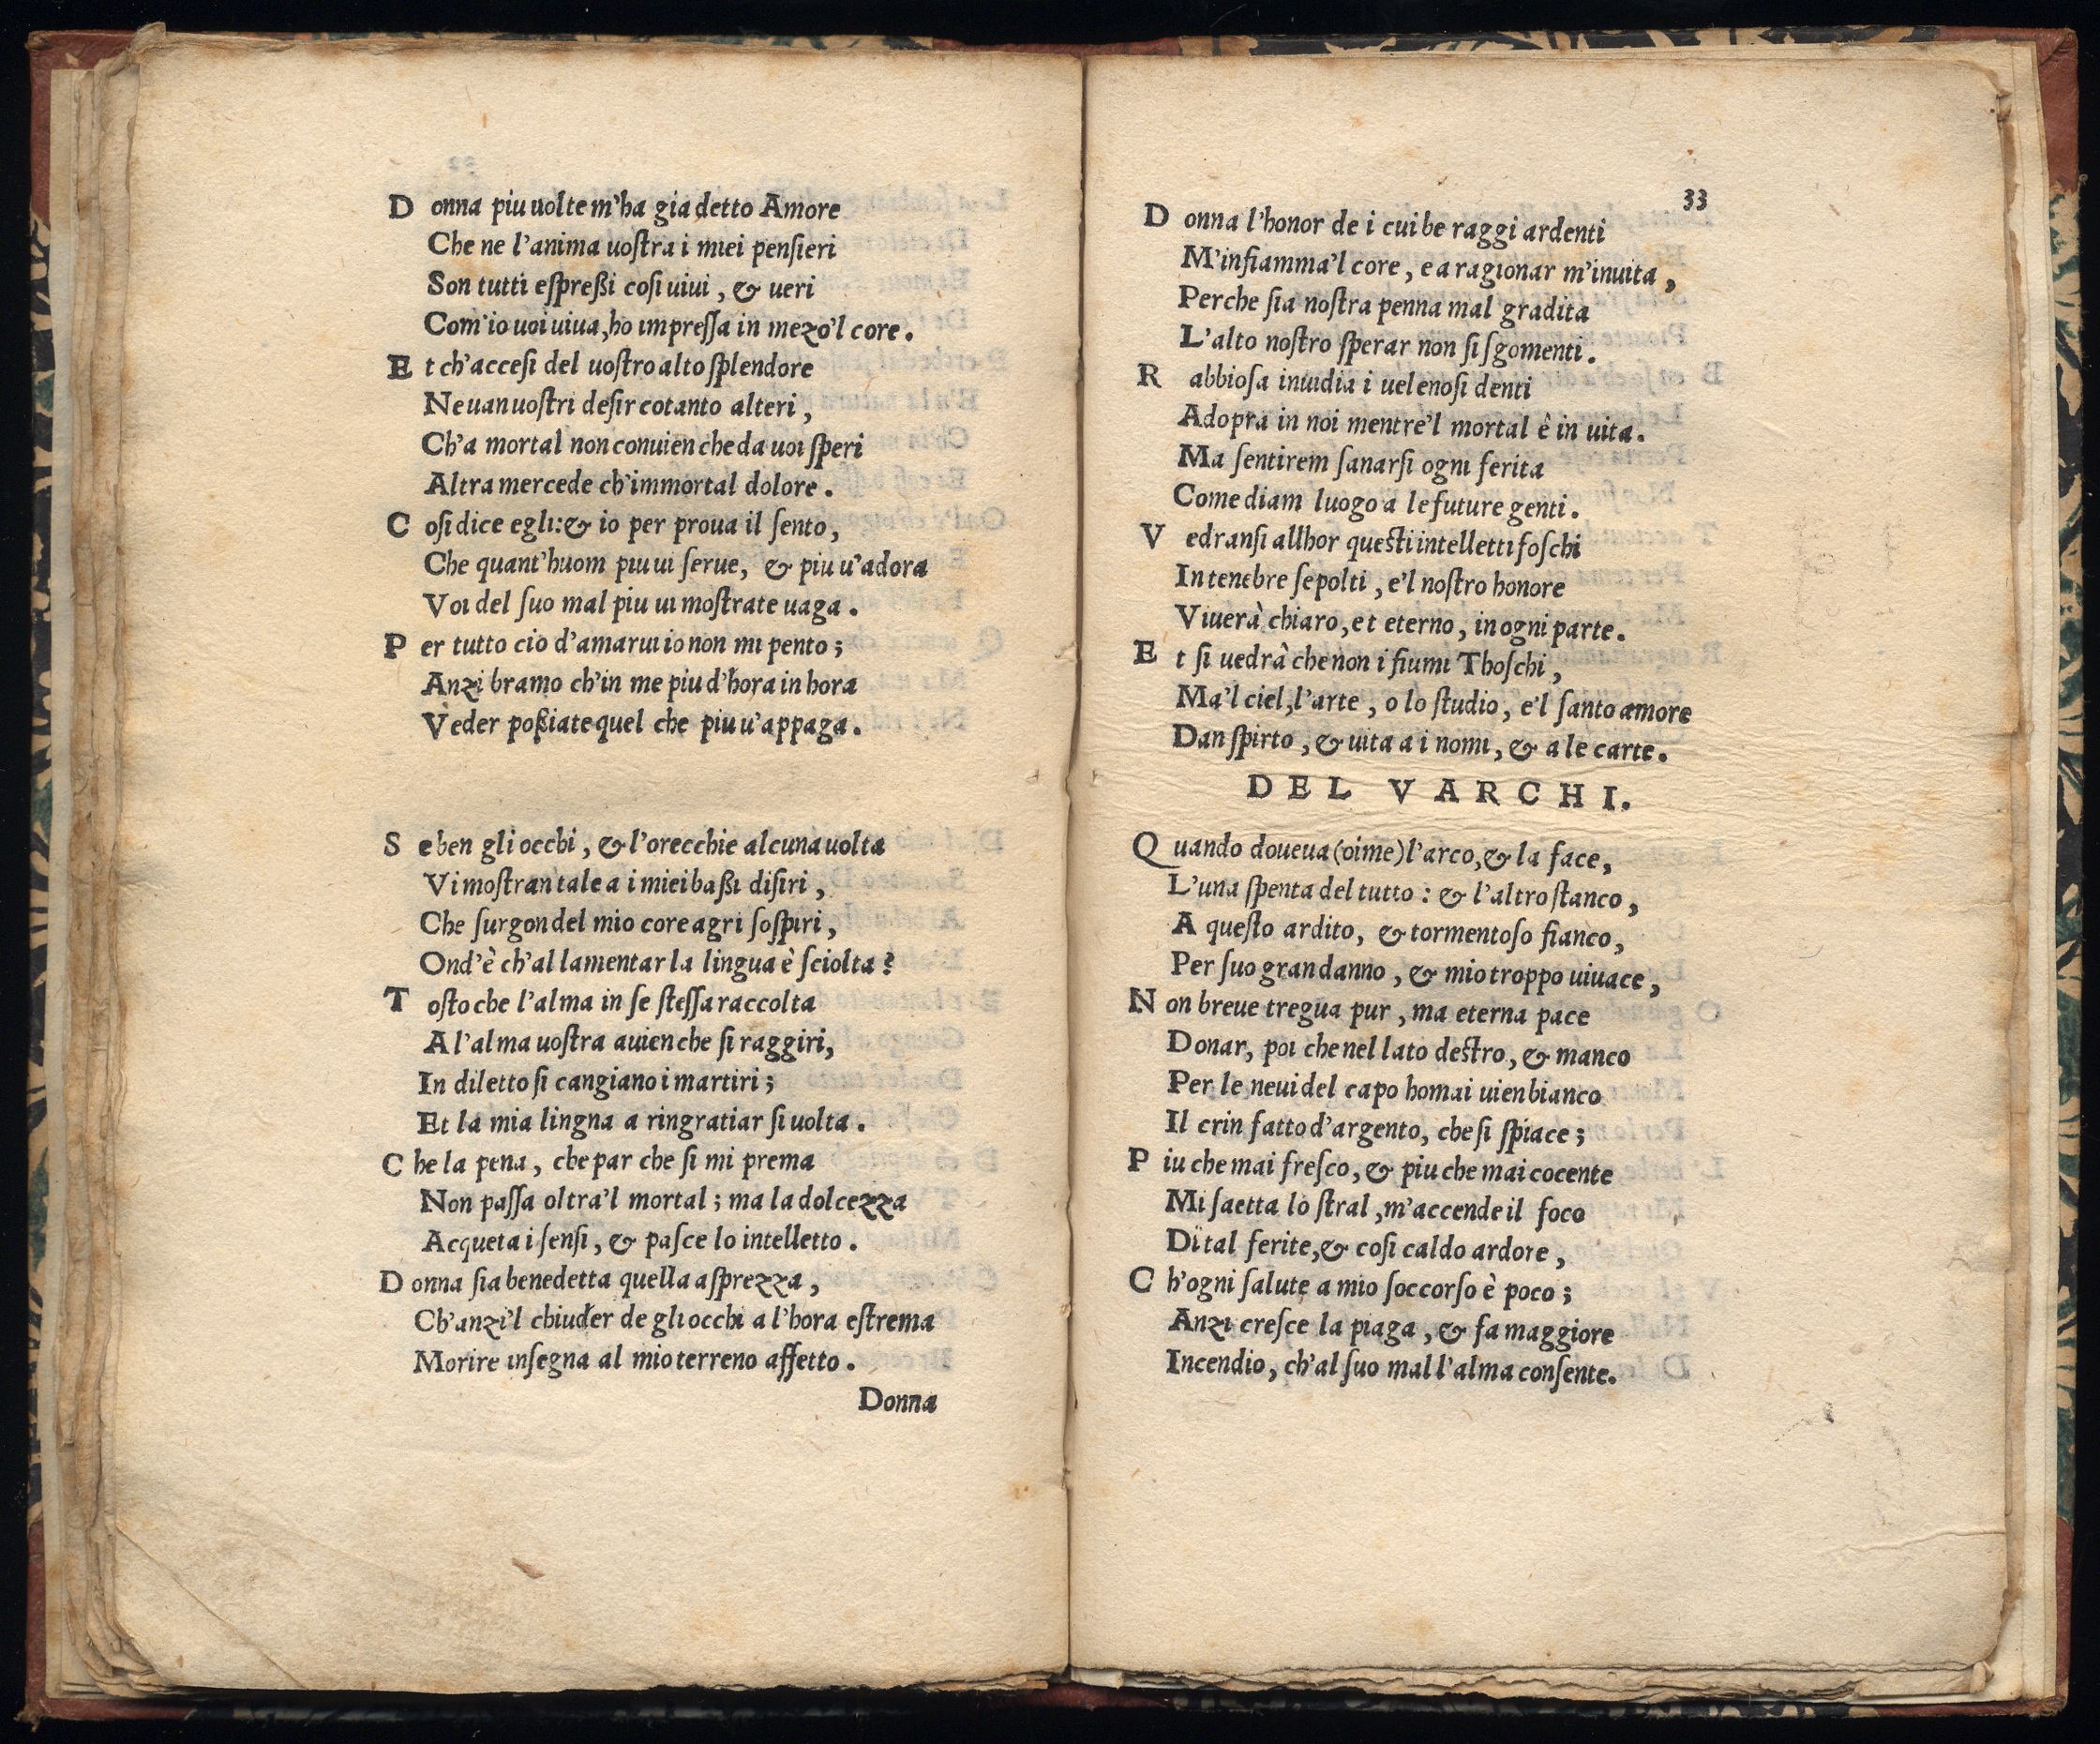 Donna piu uolte m'ha gia detto Amore
Che ne l'anima uoſtra i miei penſieri
Son tutti eſpreßi coſi uiui, & ueri
Com'io uoi uiua, ho impreſſa in mezo'l core.
Et ch'acceſi del uoſtro alto ſplendore
Ne uan uoſtri deſir cotanto alteri,
Ch'a mortal non conuien che da uoi ſperi
Altra mercede ch'immortal dolore.
Coſi dice egli: & io per proua il ſento,
Che quant'huom piu ui ſerue, & piu u'adora
Voi del ſuo mal piu ui moſtrate uaga.
Per tutto cio d'amarui io non mi pento;
Anzi bramo ch'in me piu d'hora in hora
Veder poßiate quel che piu u'appaga.
Se ben gli occhi, & l'orecchie alcuna uolta
Vi moſtran tale a i miei baßi diſiri,
Che ſurgon del mio core agri ſoſpiri,
Ond'è ch'al lamentar la lingua è ſciolta?
Toſto che l'alma in ſe ſteſſa raccolta
A l'alma uoſtra auien che ſi raggiri,
In diletto ſi cangiano i martiri;
Et la mia lingna a ringratiar ſi uolta.
Che la pena, che par che ſi mi prema
Non paſſa oltra'l mortal; ma la dolcezza
Acqueta i ſenſi, & paſce lo intelletto.
Donna ſia benedetta quella aſprezza,
Ch'anzi'l chiuder de gli occhi a l'hora eſtrema
Morire inſegna al mio terreno affetto.
Donna
33
Donna l'honor de i cui be raggi ardenti
M'infiamma'l core, e a ragionar m'inuita,
Perche ſia noſtra penna mal gradita
L'alto noſtro ſperar non ſi ſgomenti.
Rabbioſa inuidia i uelenoſi denti
Adopra in noi mentre'l mortal è in uita.
Ma ſentirem ſanarſi ogni ferita
Come diam luogo a le future genti.
Vedranſi allhor queſti intelletti foſchi
In tenebre ſepolti, e'l noſtro honore
Viuerà chiaro, et eterno, in ogni parte.
Et ſi uedrà che non i fiumi Thoſchi,
Ma'l ciel, l'arte, o lo ſtudio, e'l ſanto amore
Dan ſpirto, & uita a i nomi, & a le carte.
DEL VARCHI.
Quando doueua (oime) l'arco, & la face,
L'una ſpenta del tutto: & l'altro ſtanco,
A queſto ardito, & tormentoſo fianco,
Per ſuo gran danno, & mio troppo uiuace,
Non breue tregua pur, ma eterna pace
Donar, poi che nel lato deſtro, & manco
Per le neui del capo homai uien bianco
Il crin fatto d'argento, che ſi ſpiace;
Piu che mai freſco, & piu che mai cocente
Mi ſaetta lo ſtral, m'accende il foco
Di tal ferite, & coſi caldo ardore,
Ch'ogni ſalute a mio ſoccorſo è poco;
Anzi creſce la piaga, & fa maggiore
Incendio, ch'al ſuo mal l'alma conſente.